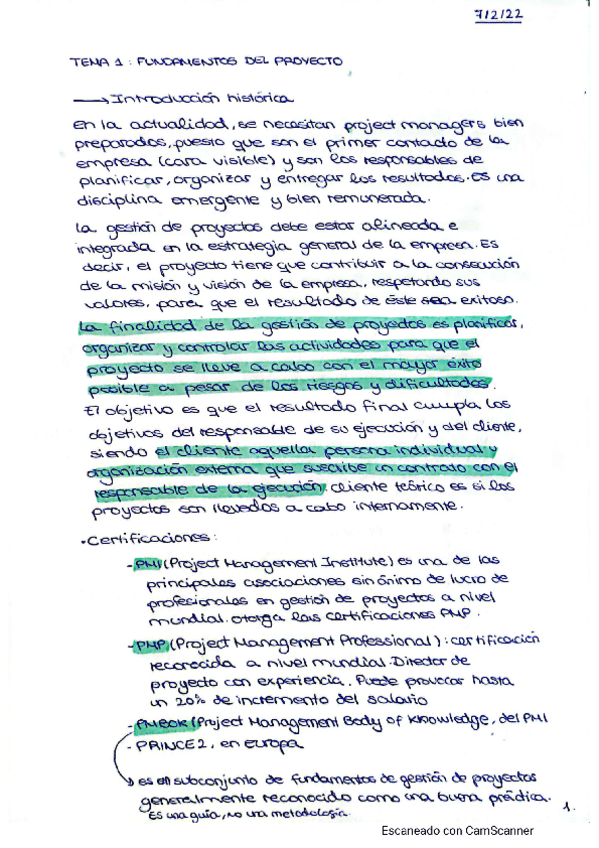 7/2/22
TEMA 1: FUNDAMENTOS DEL PROYECTO
→ Introducción histórica
en la actualidad, se necesitan project managers bien
preparados, puesto que son el primer contacto de la
empresa (cara visible) y son los responsables de
planificar, organizar y entregar los resultados. es una
disciplina emergente y bien remunerada.
La gestión de proyectos debe estar alineada e
integrada en la estrategia general de la empresa. Es
decir, el proyecto tiene que contribuir a la consecución
de la misión y visión de la empresa, respetando sus
valores, para que el resultado de éste sea exitoso.
La finalidad de la gestión de proyectos es planificar,
organizar y controlar las actividades para que el
proyecto se lleve a cabo con el mayor éxito
posible a pesar de los riesgos y dificultades.
El objetivo es que el resultado final cumpla los
objetivos del responsable de su ejecución y del cliente,
siendo el cliente aquella persona individual y
organización externa que suscribe un contrato con el
responsable de la ejecución. cliente teórico es si los
proyectos son llevados a cabo internamente.
• Certificaciones:
- PMI (Project Management Institute) es una de las
principales asociaciones sin ánimo de lucro de
profesionales en gestión de proyectos a nivel
mundial. otorga las certificaciones PMP.
- PMP (Project Management Professional): certificación
reconocida a nivel mundial. Director de
proyecto con experiencia. Puede provocar hasta
un 20% de incremento del salario
- PMBOK (Project Management Body of Knowledge, del PMI
- PRINCE2, en europa
→ es un subconjunto de fundamentos de gestión de proyectos
generalmente reconocido como una buena práctica.
Es una guía, no una metodología.
1.
Escaneado con CamScanner